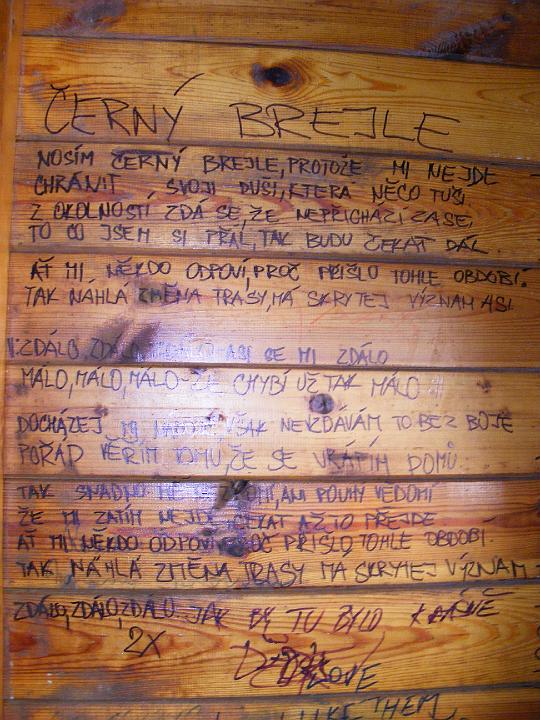 ČERNÝ BREJLE
NOSÍM ČERNÝ BREJLE, PROTOŽE MI NEJDE
CHRÁNIT SVOJI DUŠI, KTERÁ NĚCO TUŠÍ,
Z OKOLNOSTÍ ZDÁ SE, ŽE NEPŘICHÁZÍ ZASE,
TO CO JSEM SI PŘÁL, TAK BUDU ČEKAT DÁL.
AŤ MI NĚKDO ODPOVÍ, PROČ PŘIŠLO TOHLE OBDOBÍ.
TAK NÁHLÁ ZMĚNA TRASY, MÁ SKRYTEJ VÝZNAM ASI
ZDÁLO, ASI SE MI ZDÁLO
MÁLO, MÁLO, MÁLO CHYBÍ UŽ TAK MÁLO
DOCHÁZEJ MI VŠAK NEVZDÁVÁM TO BEZ BOJE
POŘÁD VĚŘÍM TOMU, ŽE SE VRÁTÍM DOMŮ.
TAK SNADNO ANI POUHÝ VĚDOMÍ
ŽE MI ZATÍM NEJDE ČEKAT AŽ TO PŘEJDE.
AŤ MI NĚKDO ODPOVÍ PROČ PŘIŠLO TOHLE OBDOBÍ.
TAK NÁHLÁ ZMĚNA TRASY MÁ SKRYTEJ VÝZNAM
ZDÁLO, ZDÁLO, ZDÁLO JAK BY TU BYLO KRÁSNĚ
2X
LOVE
LIKE THEM,